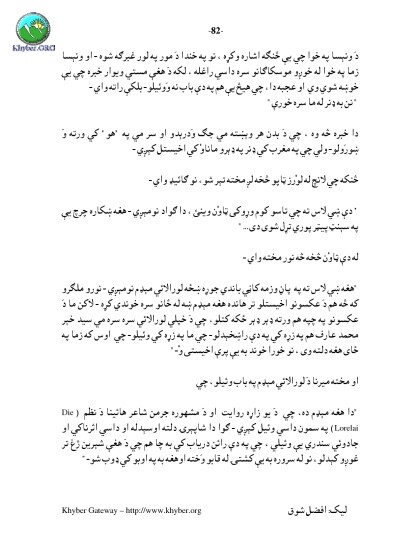 -82-
Khyber.ORG
دَ ونېسا په خوا چي یې څنګه اشاره وکړه ، نو په خندا دَ مور په لور غېرګه شوه - او ونېسا
زما په خوا له خوږو موسکاګانو سره داسي راغله ، لکه دَ هغې مستي ویوار خبره چي یې
خوښه شوي وي او عجبه دا ، چي هیڅ یې هم په دې باب نه وَوئیلو - بلکي راته واي -
"نن به ډنر له ما سره خورې"
دا خبره څه وه ، چي دَ بدن هر وېښته مي جګ وَدرېدو او سر مي په "هو" کي ورته وَ
ښورَولو - ولي چي په مغرب کي ډنر په ډېرو ماناوٴ کي اخیستل کیږي -
څنګه چي لانچ له لوٴرز ټاپو څخه لږ مخته تېر شو ، نو ګائیډ واي -
"دې ښي لاس ته چي تاسو کوم وړوکی ټاوٴن وینئ ، دا ګواډ نومېږي - هغه ښکاره چرچ یې
په سېنټ پیټر پوري تړل شوی دی..."
له دې ټاوٴن څخه نور مخته واي -
"هغه ښي لاس ته په پاڼ وزمه کاڼي باندي جوړه ښځه لورالائي مېډم نومېږي - نورو ملګرو
که څه هم دَ عکسونو اخیستلو تر هانده هغه مېډم ښه له ځانو سره خوندي کړه - لاکن ما دَ
عکسونو په چپه هم ورته ډېر ډېر څکه کتلو ، چي دَ خپلي لورالائي سره سره مي سید خبر
محمد عارف هم په زړه کي په دې راښخېدلو - چي ما په زړه کي وئیلو - چي اوس که زما په
ځای هغه دلته وی ، نو خورا خوند به یې پرې اخیستی وٴ -"
او مخته میرنا دَ لورالائي مېډم په باب وئیلو ، چي
"دا هغه مېډم ده، چي دَ یو زاړه روایت او دَ مشهوره جرمن شاعر هائینا دَ نظم ( Die
Lorelai) په سمون داسي وئیل کیږي - ګوا دا شاپېرۍ دلته اوسېدله او داسي اثرناکي او
جادوئي سندري یې وئیلي ، چي په دې رائن دریاب کي به چا هم چي دَ هغې شیرین ږغ تر
غوږو کېدلو ، نو له سروره به یې کشتۍ له قابو وَخته او هغه به په اوبو کي ډوب شو -"
Khyber Gateway – http://www.khyber.org
لیک: افضل شوق